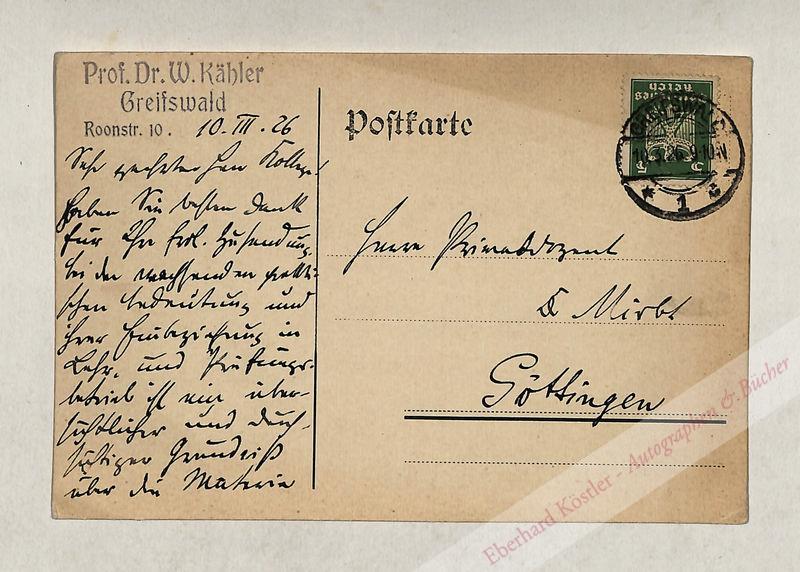 Prof. Dr. W. Kähler
Greifswald
Roonstr. 10.
10. III. 26
Sehr geehrter Herr Kollege!
Haben Sie besten Dank
für Ihre frdl. Zusendung.
bei der wachsenden prakti-
schen Bedeutung und
ihrer Einbeziehung in
Lehr- und Prüfungs-
betrieb ist ein über-
sichtlicher und durch-
sichtiger Grundriß
über die Materie
Postkarte
Herrn Privatdozent
Mirbt
Göttingen
Deutsches
Reich
5
GREIFSWALD
9-10V
* 1 c
Eberhard Köstler - Autographen & Bücher